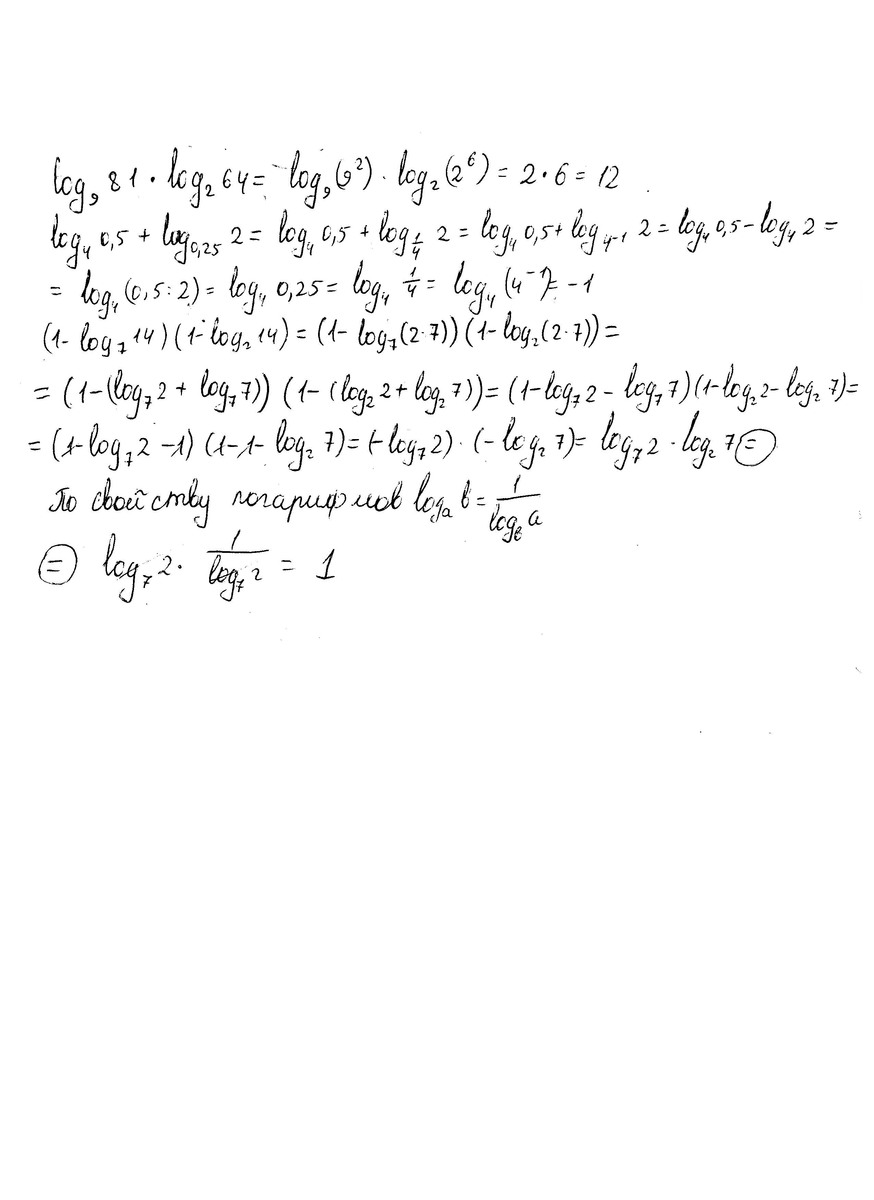 log₉ 81 · log₂ 64 = log₉(9²) · log₂(2⁶) = 2 · 6 = 12
log₄ 0,5 + log₀,₂₅ 2 = log₄ 0,5 + log_{1/4} 2 = log₄ 0,5 + log_{4⁻¹} 2 = log₄ 0,5 - log₄ 2 =
= log₄(0,5:2) = log₄ 0,25 = log₄ 1/4 = log₄(4⁻¹) = -1
(1 - log₇ 14)(1 - log₂ 14) = (1 - log₇(2·7))(1 - log₂(2·7)) =
= (1 - (log₇ 2 + log₇ 7))(1 - (log₂ 2 + log₂ 7)) = (1 - log₇ 2 - log₇ 7)(1 - log₂ 2 - log₂ 7) =
= (1 - log₇ 2 - 1)(1 - 1 - log₂ 7) = (-log₇ 2) · (-log₂ 7) = log₇ 2 · log₂ 7 =
По свойству логарифмов log_a b = 1/log_b a
= log₇ 2 · 1/log₇ 2 = 1